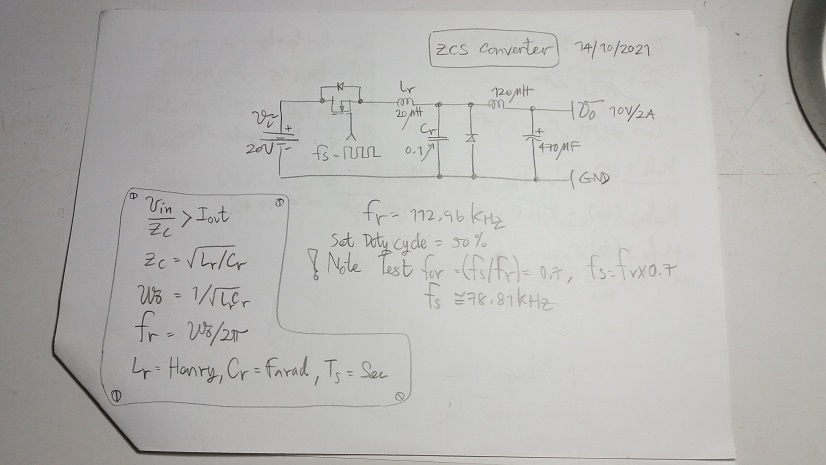 ZCS Converter 14/10/2021
Lr
20μH
120μH
Vo 10V/2A
Vi
+
20V -
fs =
Cr
0.1μ
+
470μF
GND
Vin/Zc > Iout
Zc = √Lr/Cr
ω0 = 1/√LrCr
fr = ω0/2π
Lr = Henry, Cr = Farad, Ts = Sec
fr = 112,96 kHz
Set Duty cycle = 50%
Note Test for = (fs/fr) = 0.7, fs = fr x 0.7
fs ≅ 78.81 kHz